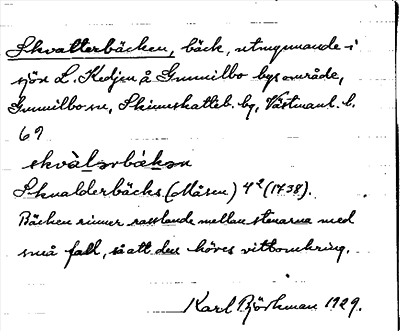 Skvatterbäcken, bäck, utmynnande i
sjön L. Kedjen å Gunnilbo bys område,
Gunnilbo sn, Skinnskatteb. bg, Västmanl. l.
69
skvàlərbäkən
Skualderbäcks (Måsen) 4² (1738).
Bäcken rinner rasslande mellan stenarna med
små fall, så att den höres vittomkring.
Karl Björkman 1929.